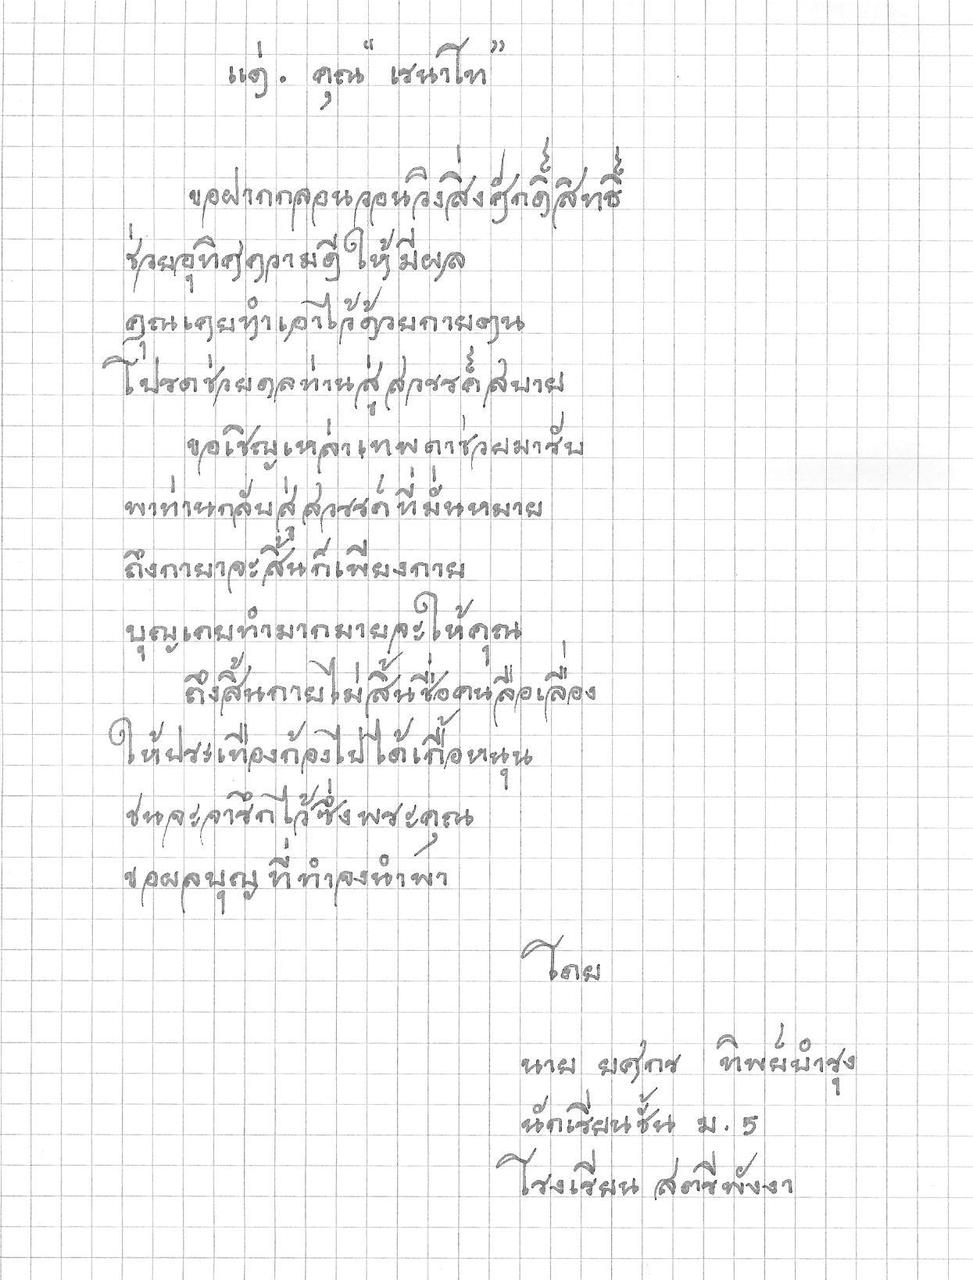 แด่. คุณ "เรนาโท"
ขอฝากกลอนวอนวิงสิ่งศักดิ์สิทธิ์
ช่วยอุทิศความดีให้มีผล
คุณเคยทำเอาไว้ด้วยกายตน
โปรดช่วยดลท่านสู่สวรรค์สบาย
ขอเชิญเหล่าเทพดาช่วยมารับ
พาท่านกลับสู่สวรรค์ที่มั่นหมาย
ถึงกายาจะสิ้นก็เพียงกาย
บุญเคยทำมากมายจะให้คุณ
ถึงสิ้นกายไม่สิ้นชื่อคนลือเลื่อง
ให้ประเทืองก้องไปได้เกื้อหนุน
ชนจะจารึกไว้ซึ่งพระคุณ
ขอผลบุญที่ทำจงนำพา
โดย
นาย ยศกร ทิพย์บำรุง
นักเรียนชั้น ม.5
โรงเรียน สตรีพังงา